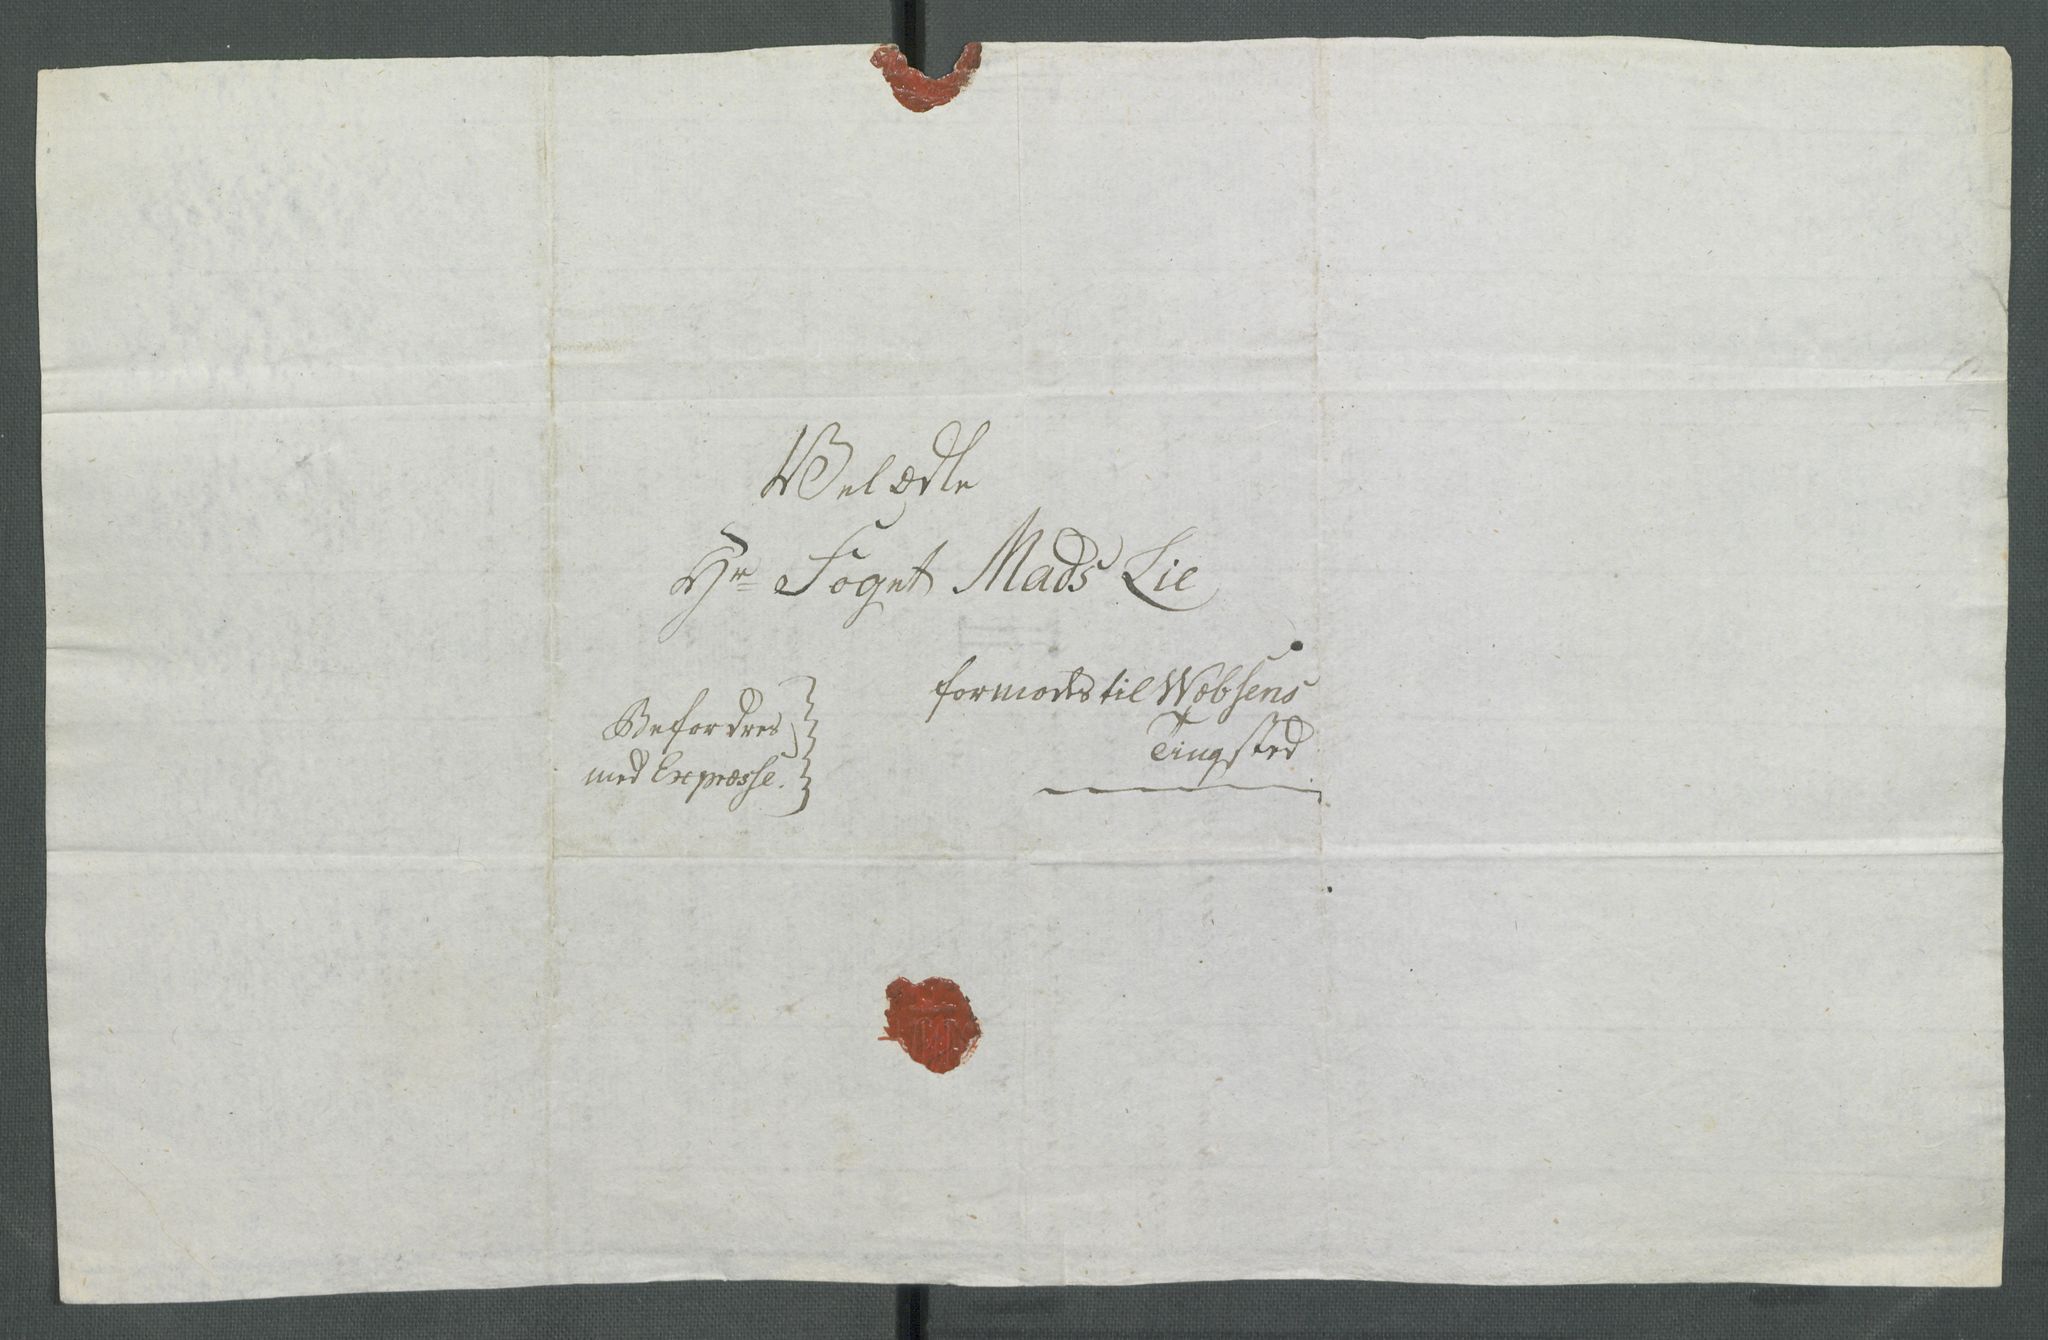 Velædle
Hr Foget Mads Lie
formodes til Wobsens
Tingsted
Befordres
med Expresse.